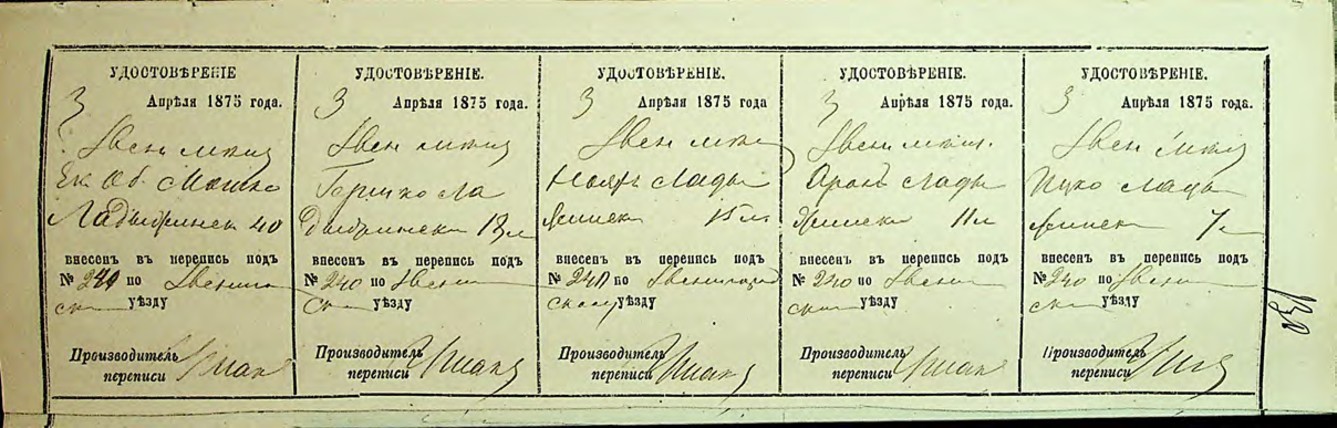 УДОСТОВѢРЕНІЕ
3 Апрѣля 1875 года.
Звен мѣщ
Ек. Об. Мошко
Ладыжинск 40
внесенъ въ перепись подъ
№ 240 по Звениго
ск уѣзду
Производитель
переписи
УДОСТОВѢРЕНІЕ.
3 Апрѣля 1875 года.
Звен мѣщ
Гершко Ла
дыжинск 18 л
внесенъ въ перепись подъ
№ 240 по Звени
ск уѣзду
Производитель
переписи
УДОСТОВѢРЕНІЕ.
3 Апрѣля 1875 года
Звен мѣщ
Лады
жинск 15 л
внесенъ въ перепись подъ
№ 240 по Звенигород
ском уѣзду
Производитель
переписи
УДОСТОВѢРЕНІЕ.
3 Апрѣля 1875 года.
Звен мѣщ.
Аронъ Лады
жинск 11 л
внесенъ въ перепись подъ
№ 240 по Звени
ск уѣзду
Производитель
переписи
УДОСТОВѢРЕНІЕ.
3 Апрѣля 1875 года.
Звен мѣщ
Ицко Лады
жинск 7 л
внесенъ въ перепись подъ
№ 240 по Звени
ск уѣзду
Производитель
переписи